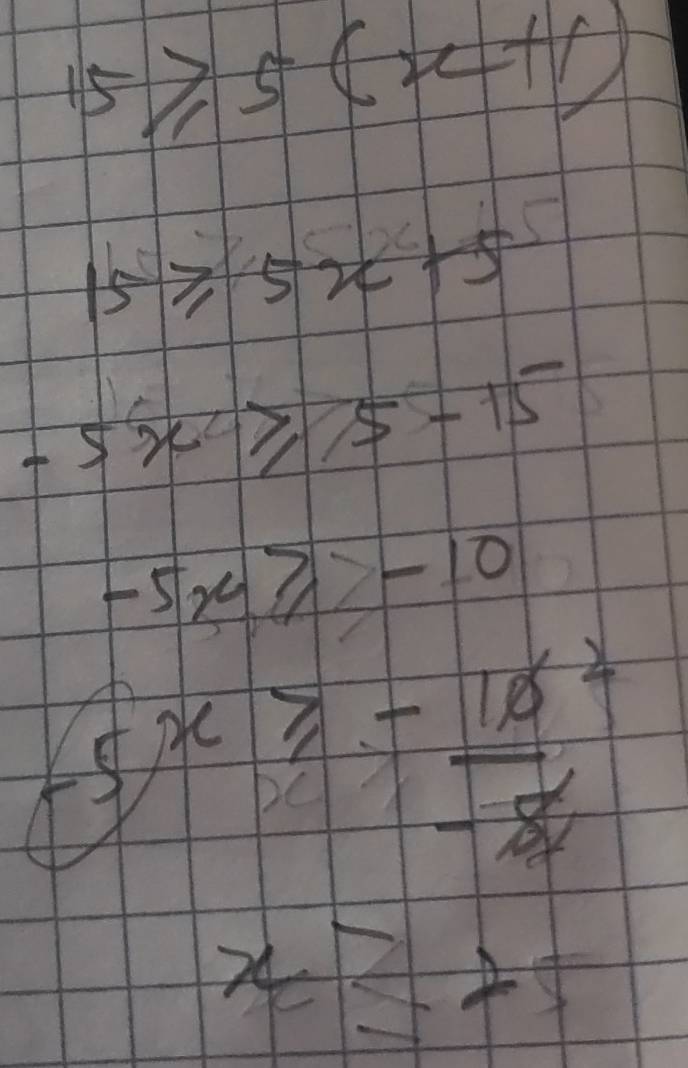 15 ⩾ 5 (x+1)
15 ⩾ 5x+5
-5x ⩾ 5-15
-5x ⩾ -10
-5x ⩾ -10/-5 2
x ≤ 2